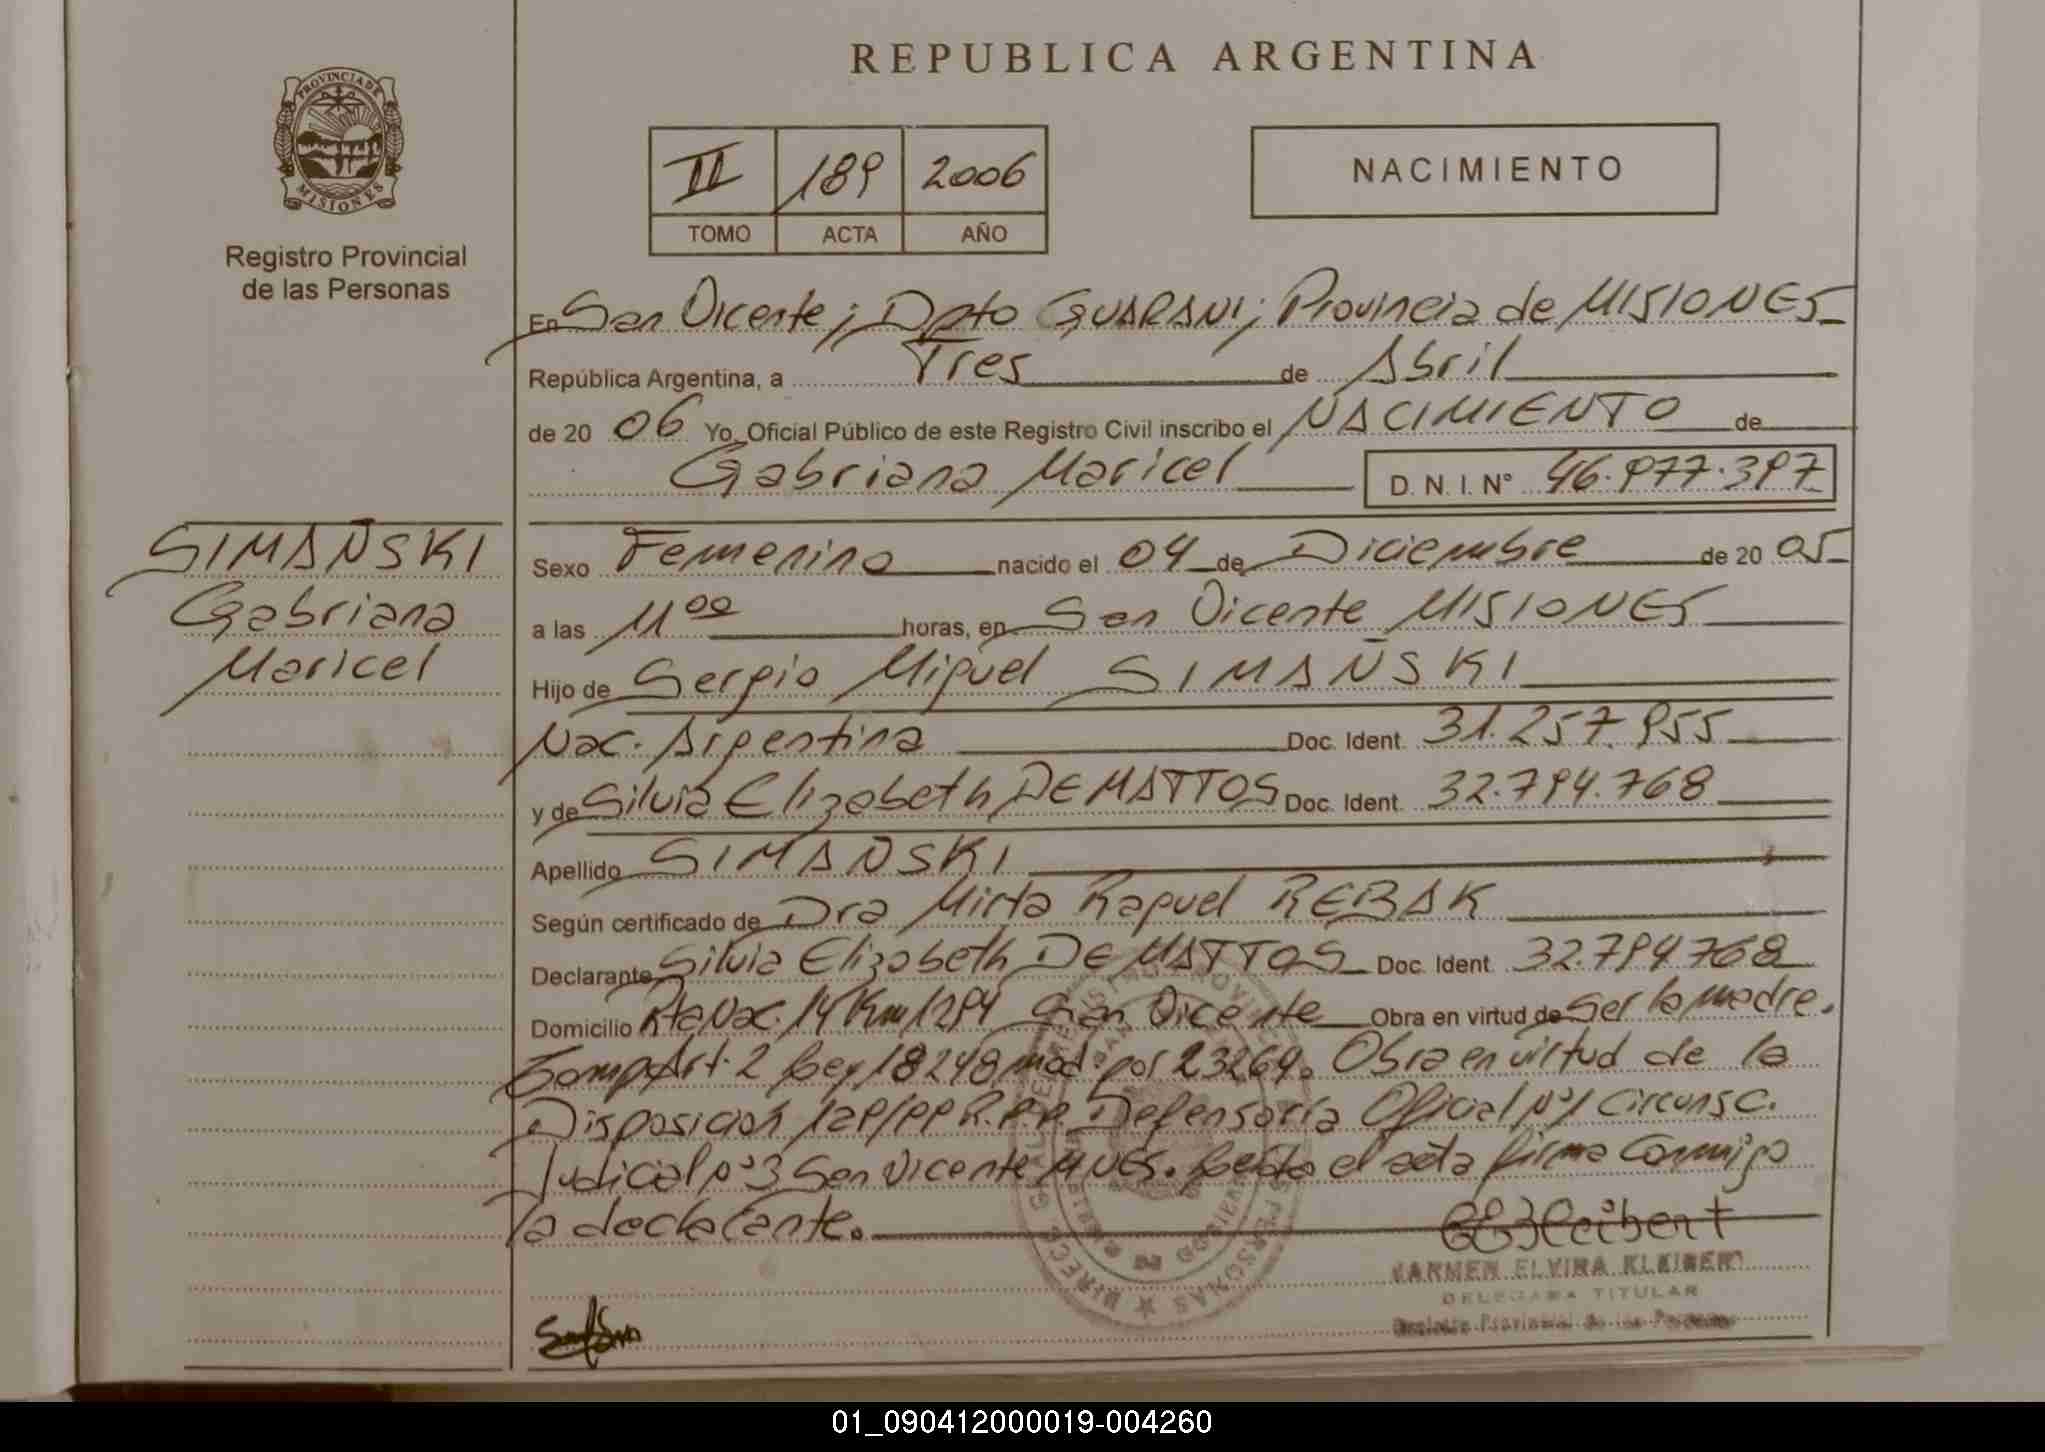 REPUBLICA ARGENTINA
PROVINCIA DE MISIONES
Registro Provincial
de las Personas
II 189 2006
TOMO ACTA AÑO
NACIMIENTO
En San Vicente; Dpto GUARANI; Provincia de MISIONES
República Argentina, a Tres de Abril
de 20 06 Yo, Oficial Público de este Registro Civil inscribo el NACIMIENTO de
Gabriana Maricel D. N. I. N° 46.977.397
SIMAÑSKI
Gabriana
Maricel
Sexo Femenino nacido el 04 de Diciembre de 20 05
a las 11⁰⁰ horas, en San Vicente MISIONES
Hijo de Sergio Miguel SIMAÑSKI
Nac. Argentina Doc. Ident. 31.257.955
y de Silvia Elizabeth DE MATTOS Doc. Ident. 32.794.768
Apellido SIMAÑSKI
Según certificado de Dra Mirta Raquel REBAK
Declarante Silvia Elizabeth DE MATTOS Doc. Ident. 32.794768
Domicilio Rta Nac. 14 Km 1294 San Vicente Obra en virtud de Ser la madre.
Art. 2 Ley 18248 mod. por 23264. Obra en virtud de la
Disposición 129/99 R.P.P. Defensoría Oficial Nº1 Circunsc.
Judicial Nº3 San Vicente Mnes. el acta firma conmigo
la declarante.
CARMEN ELVIRA KLEIBERT
DELEGADA TITULAR
Registro Provincial de las Personas
01_090412000019-004260